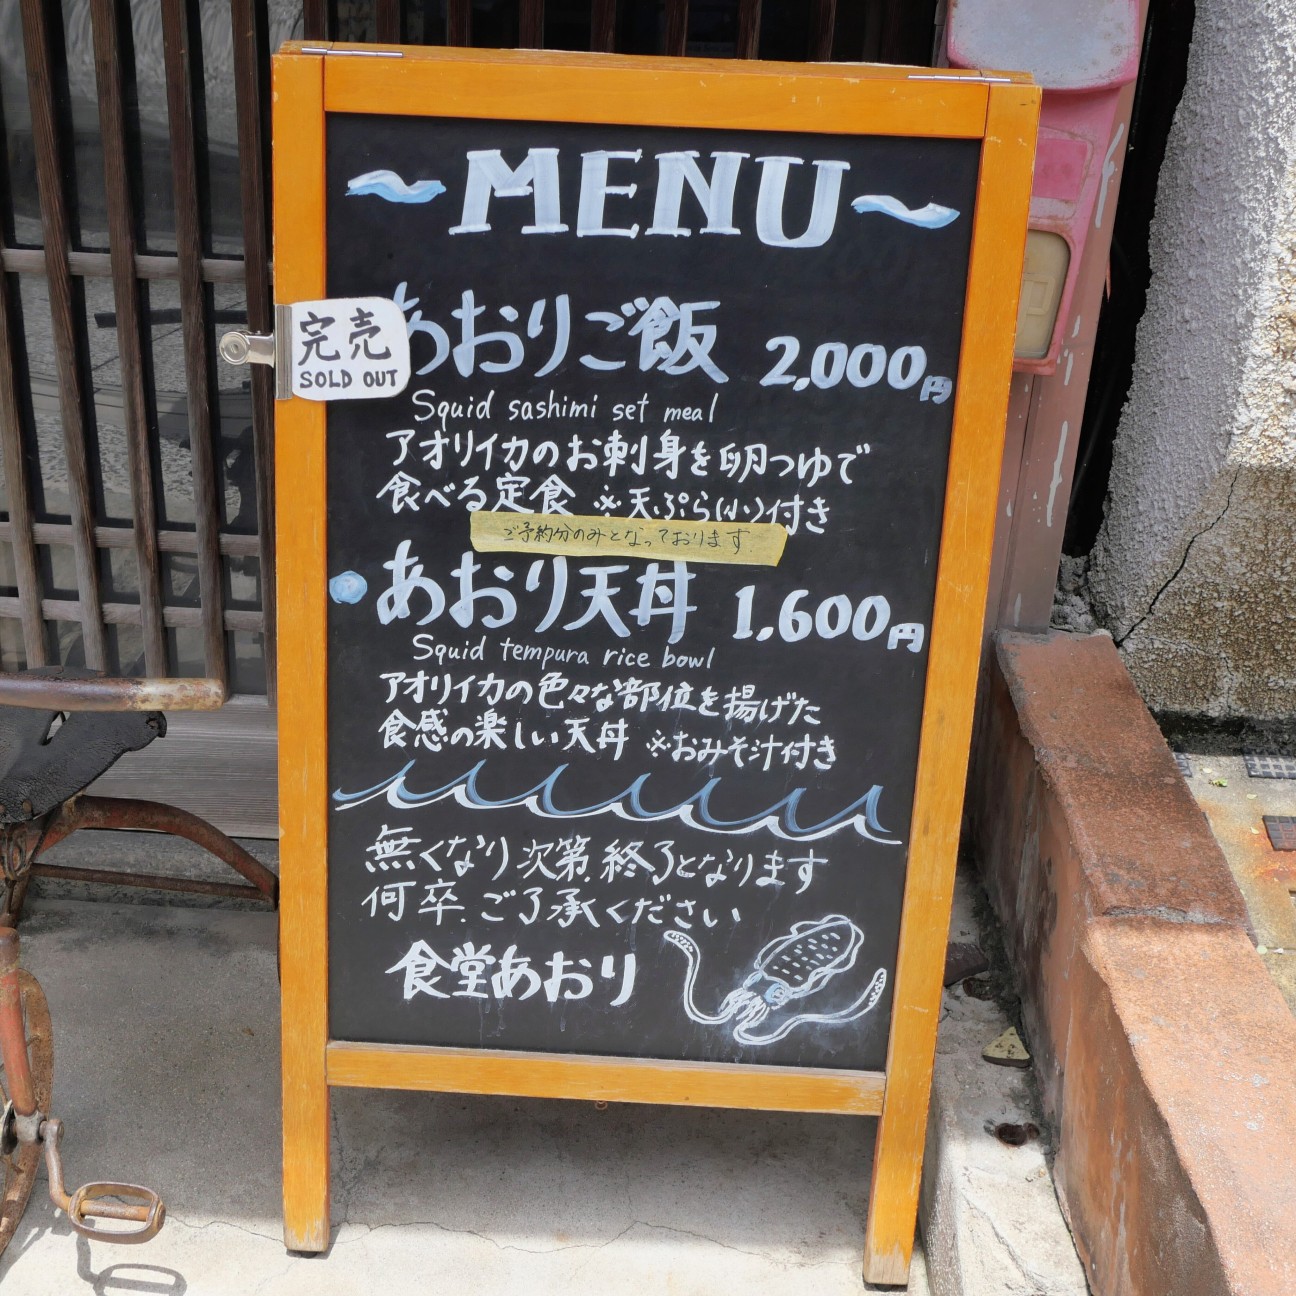 ~MENU~
完売
SOLD OUT
あおりご飯 2,000円
Squid sashimi set meal
アオリイカのお刺身を卵つゆで
食べる定食 ※天ぷら(小)付き
ご予約分のみとなっております
あおり天丼 1,600円
Squid tempura rice bowl
アオリイカの色々な部位を揚げた
食感の楽しい天丼 ※おみそ汁付き
無くなり次第、終了となります
何卒、ご了承ください
食堂あおり